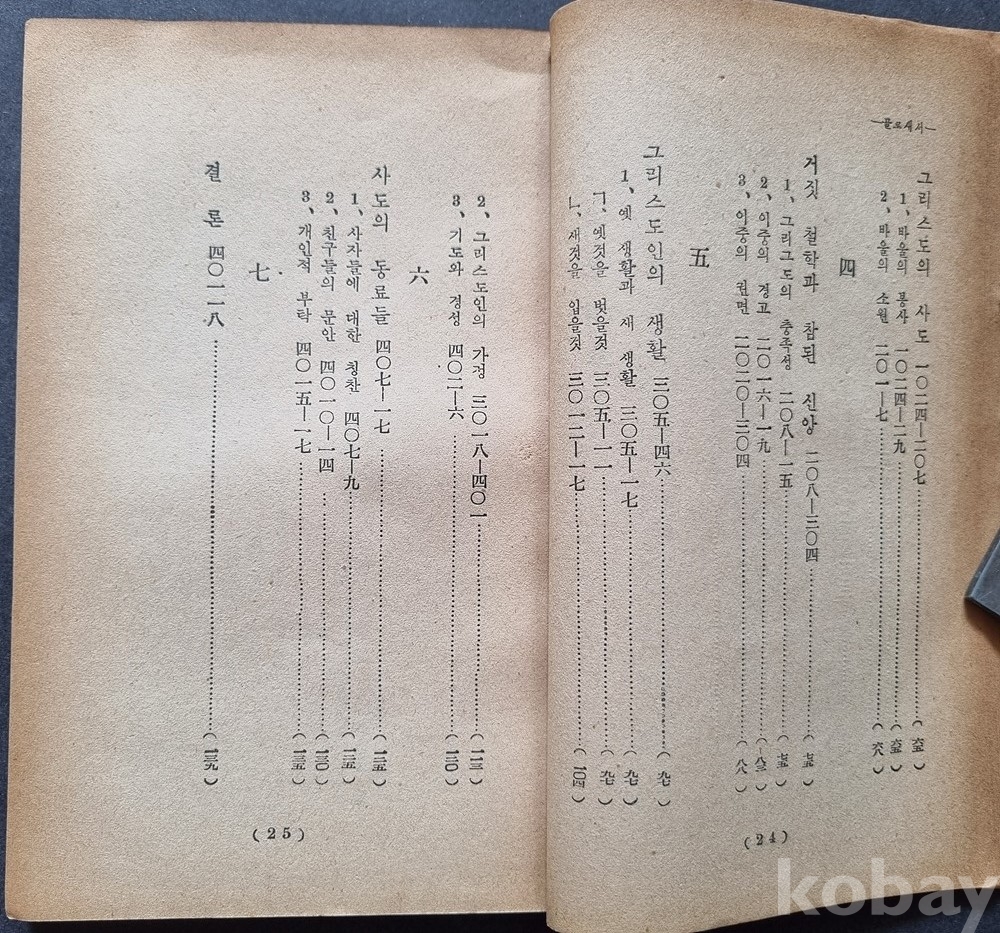 골로새서
그리스도의 사도 一〇二四—二〇七………(六五)
1、바울의 봉사 一〇二四—二九………(六五)
2、바울의 소원 二〇一—七………(六八)
四
거짓 철학과 참된 신앙 二〇八—三〇四………(七五)
1、그리그도의 충족성 二〇八—一五………(七五)
2、이중의 경고 二〇一六—一九………(八三)
3、이중의 권면 二〇二〇—三〇四………(八八)
五
그리스도인의 생활 三〇五—四六………(九七)
1、옛 생활과 새 생활 三〇五—一七………(九七)
ㄱ、옛것을 벗을것 三〇五—一一………(九七)
ㄴ、새것을 입을것 三〇一二—一七………(一〇四)
(24)
2、그리스도인의 가정 三〇一八—四〇一………(一一三)
3、기도와 경성 四〇二—六………(一二〇)
六
사도의 동료들 四〇七—一七………(一二五)
1、사자들에 대한 칭찬 四〇七—九………(一二五)
2、친구들의 문안 四〇一〇—一四………(一三〇)
3、개인적 부탁 四〇一五—一七………(一三五)
七
결론 四〇一一八………(一三九)
(25)
kobay